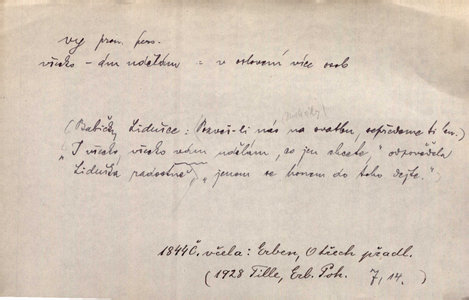 vy pron. pers.
všecko – ám udělám = v oslovení více osob
(Babičky Lidušce: Pozveš-li nás na svatbu, sepředeme ti len.)
"I všecko, všecko vám udělám, co jen chcete," odpověděla
Liduška radostně, "jenom se honem do toho dejte."
1844 Č. včela: Erben, O třech přadl.
(1928 Tille, Erb. Poh. 7, 14.)